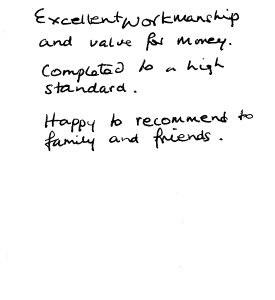 Excellent workmanship
and value for money.
Completed to a high
standard.
Happy to recommend to
family and friends.